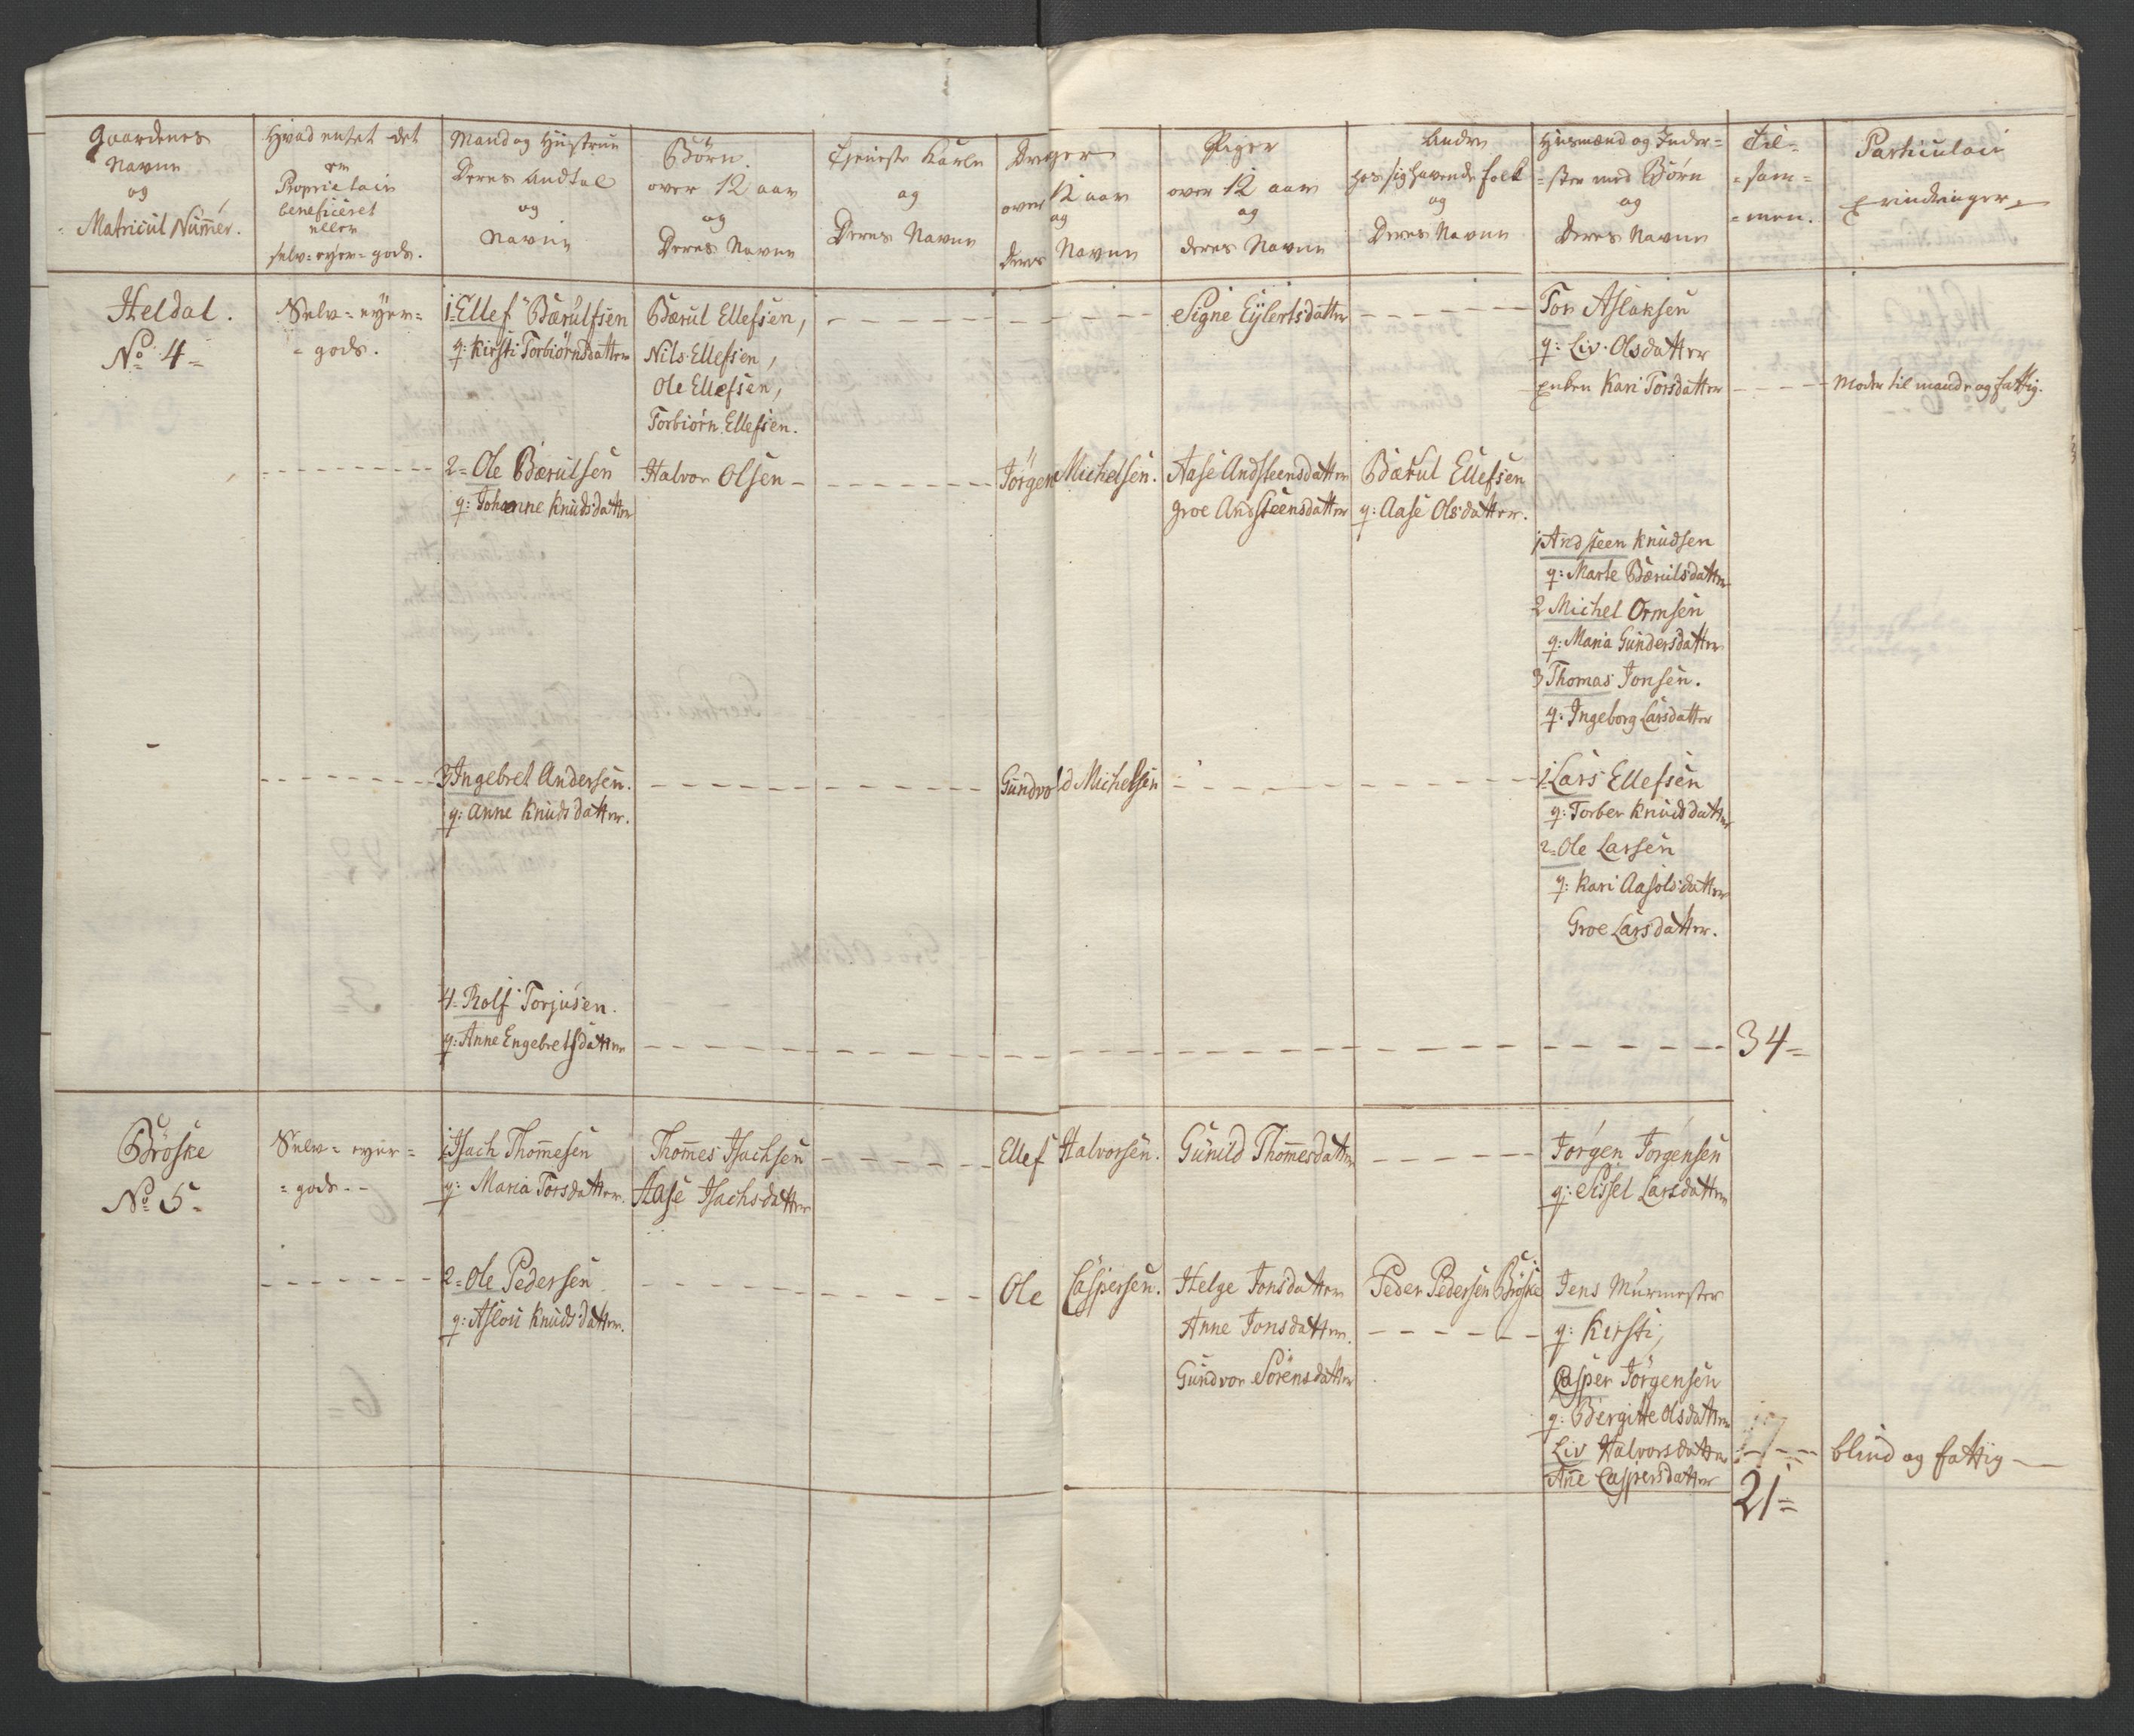 Gaardenes
Navne
og
Matricul Nummer.
Hvad entet det
er
Proprietair
beneficeret
eller
selv-eyer-gods.
Mand og Hustrue
Deres Andtal
og
Navne
Børn
over 12 aar
og
Deres Navne
Tjeneste Karle
og
Deres Navne
Drenger
over 12 aar
og
Deres Navne
Piger
over 12 aar
og
deres Navne
Andre
hos sig havende folk
og
Deres Navne
Husmænd og Inder=
=ster med Børn
og
Deres Navne
Til=
=sam=
=men.
Particulair
Erindringer
Heldal.
No 4=
Selv=eyer=
=gods.
1 Ellef Bærulfsen
q: Kirsti Torbiørnsdatter
Bærul Ellefsen,
Nils Ellefsen,
Ole Ellefsen,
Torbiørn Ellefsen.
Signe Eylertsdatter
Tor Aslaksen
q: Liv Olsdatter
Enken Kari Torsdatter
Moder til mande og fattig.
2= Ole Bærulsen
q: Johanne Knudsdatter
Halvor Olsen
Jörgen Michelsen.
Aase Andsteensdatter
Groe Andsteensdatter
Bærul Ellefsen
q: Aase Olsdatter.
1 Andsteen Knudsen
q: Marte Bærulsdatter
2 Michel Ormsen
q: Maria Gundersdatter
3 Thomas Jonsen.
q: Ingeborg Larsdatter
3 Ingebret Andersen.
q: Anne Knudsdatter.
Gundvold Michelsen
1 Lars Ellefsen
q: Torber Knudsdatter
2= Ole Larsen
q: Kari Aasolsdatter
Groe Larsdatter.
4= Rolf Torjusen.
q: Anne Engebretsdatter
34=
Bröske
No 5=
Selv=eyer=
=gods
1 Isach Thommesen
q: Maria Torsdatter.
Thommes Isachsen
Aase Isachsdatter
Ellef Halvorsen.
Gunild Thommesdatter
Jørgen Jørgensen
q: Sissel Larsdatter
2= Ole Pedersen
q: Aslou Knudsdatter.
Ole Caspersen.
Helge Jonsdatter
Anne Jonsdatter.
Gundvor Sörensdatter
Peder Pedersen Bröske
Jens Murmester
q: Kirsti,
Casper Jörgensen
q: Bergitte Olsdatter
Liv Halvorsdatter
Ane Caspersdatter
blind og fattig
21=